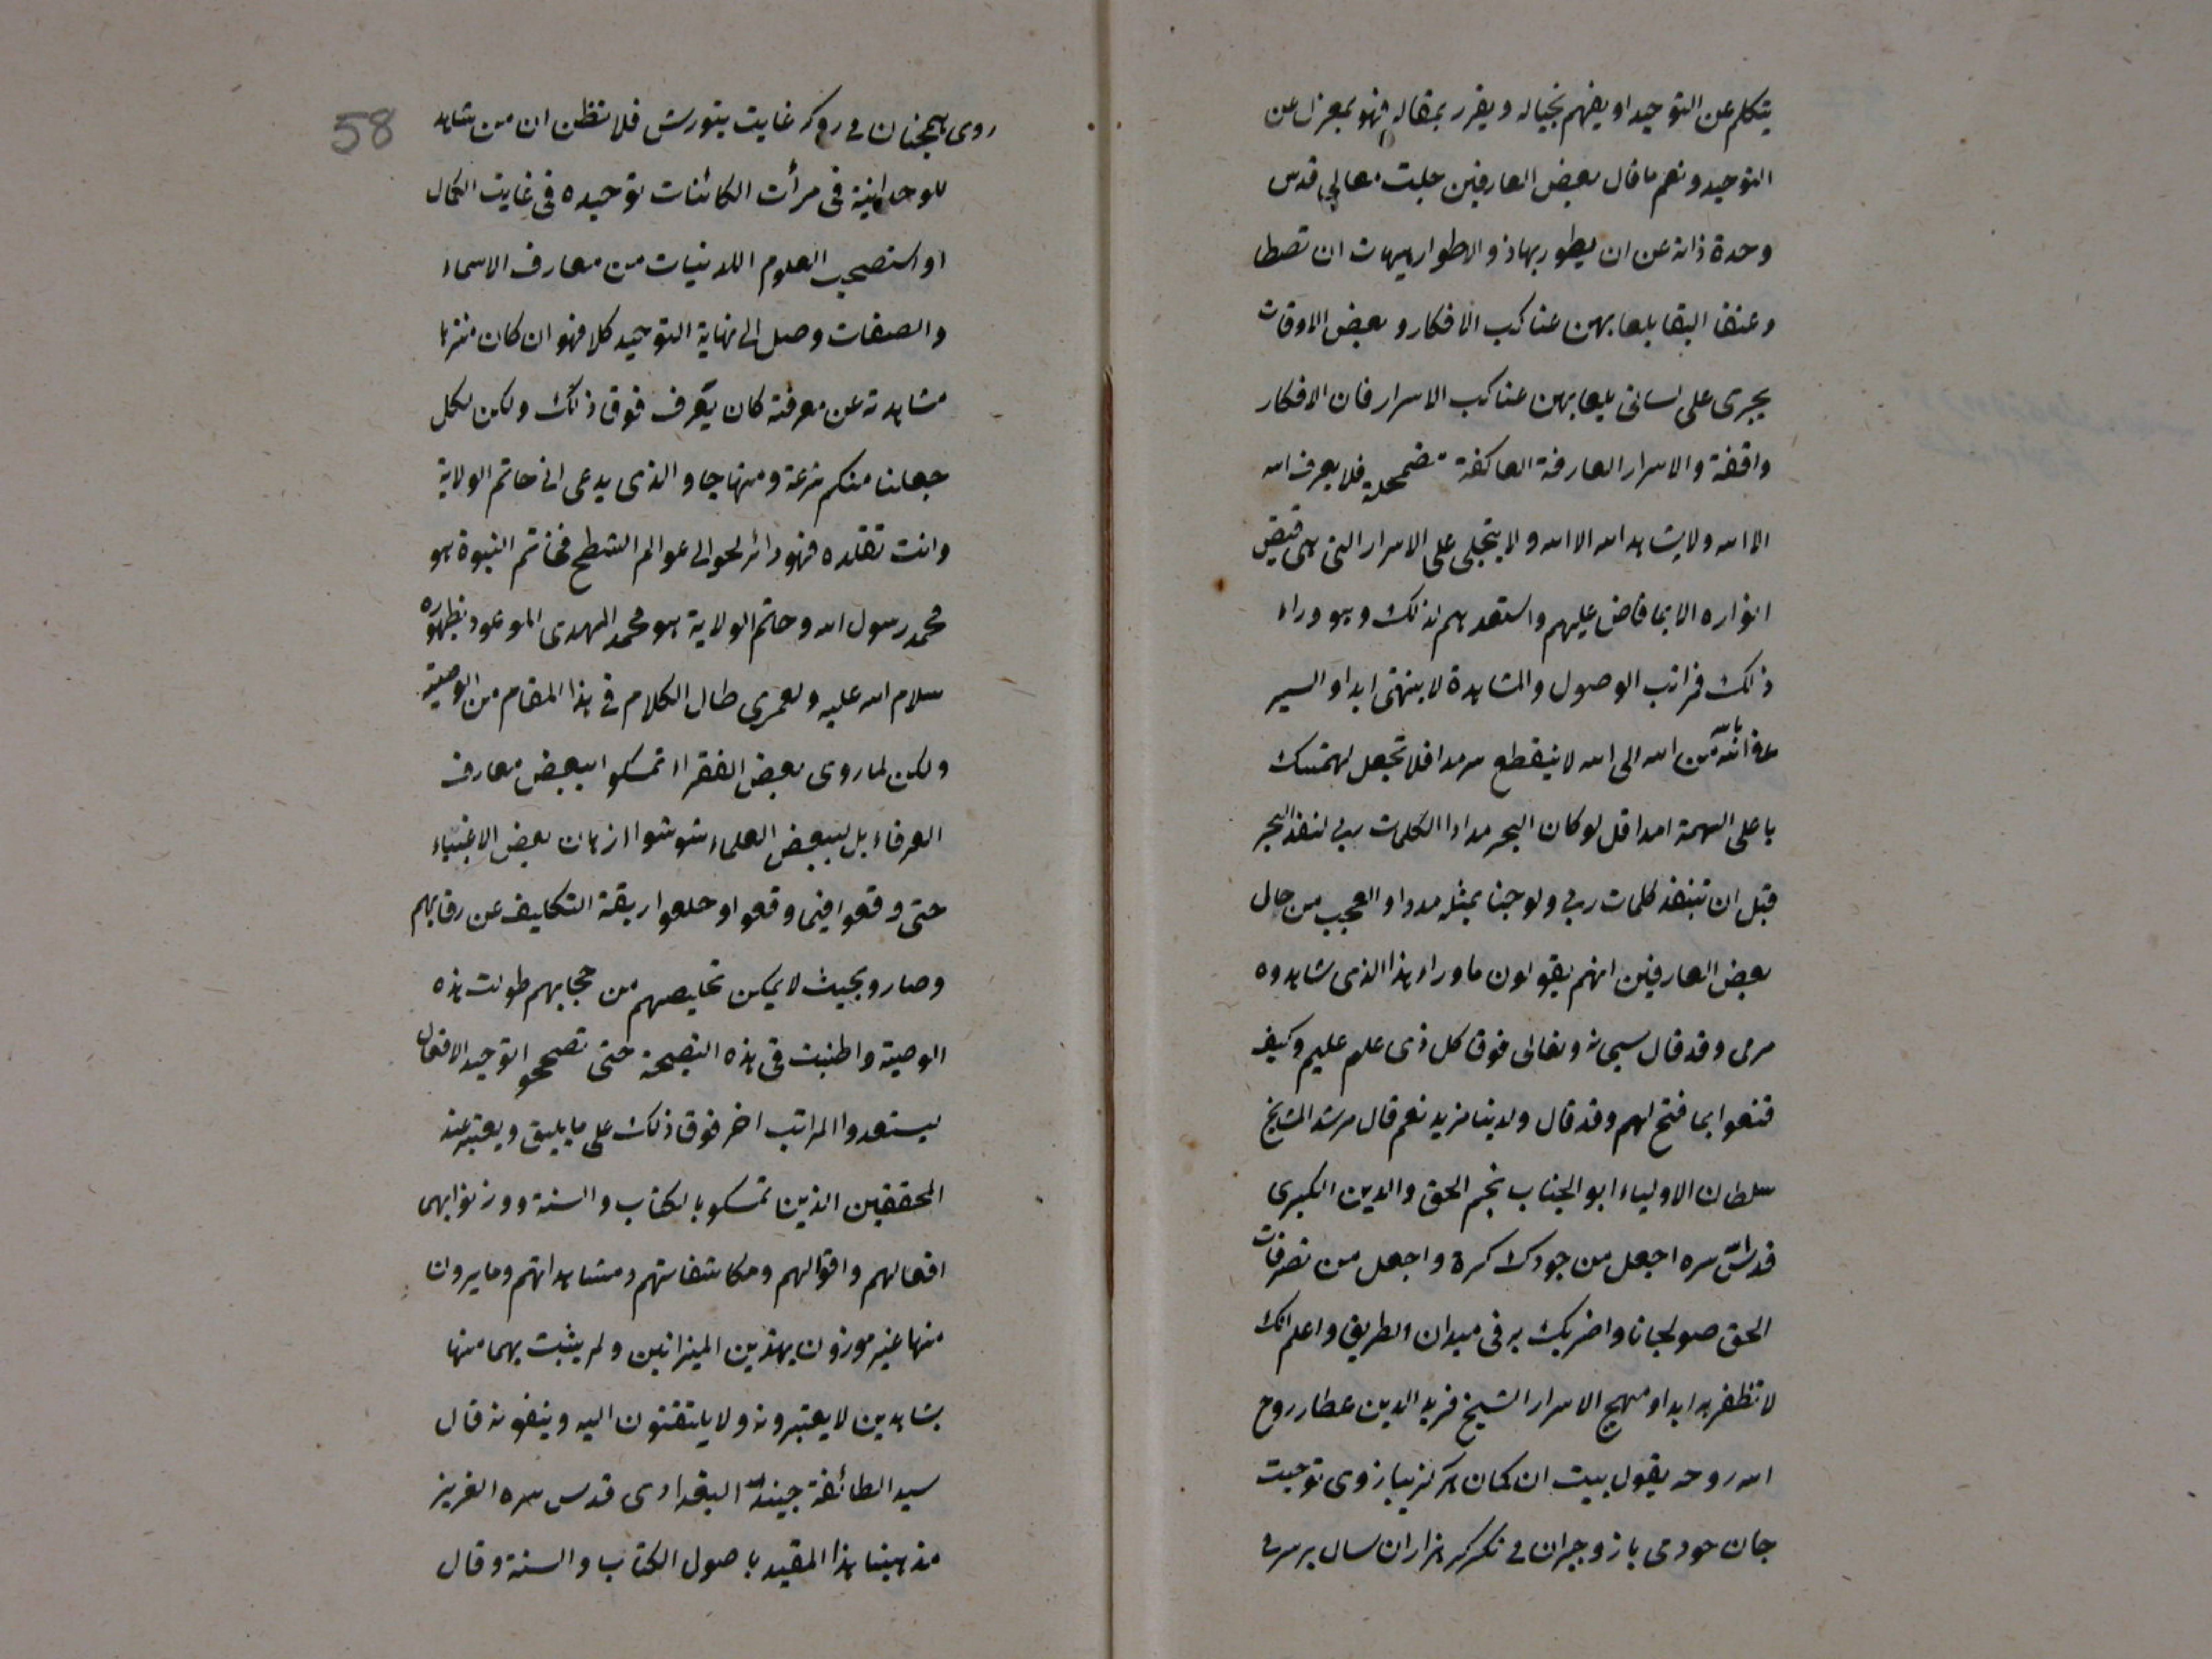 يتكلم عن التوحيد او يفهم بخياله و يقرر بمقاله فهو بمعزل عن
التوحيد ونعم ما قال بعض العارفين جلت معالي قدس
وحدة ذاته عن ان يطور بها ذو الاطوار هيهات ان تصطا
د عنقا البقا بلعابهن عناكب الافكار و بعض الاوقات
يجرى على لسانى بلعابهن عناكب الاسرار فان الافكار
واقفة والاسرار العارفة العاكفة مضمحلة فلا يعرف الله
الا الله ولا يشاهد الله الا الله و لا يتجلى على الاسرار التى هى قبض
انواره الا بما فاض عليهم واستعدهم لذلك و هو وراء
ذلك فمراتب الوصول والمشاهدة لا ينتهى ابدا و السير
من الله الى الله لا ينقطع سرمدا فلا تجعل لهمتك
يا على الهمة امدا قل لو كان البحر مدادا لكلمات ربى لنفد البحر
قبل ان تنفد كلمات ربى ولو جئنا بمثله مددا و العجب من حال
بعض العارفين انهم يقولون ما وراء هذا الذى شاهدوه
مرمى وقد قال سبحانه وتعالى فوق كل ذى علم عليم وكيف
قنعوا بما فتح لهم وقد قال ولدينا مزيد نعم قال مرشد المشايخ
سلطان الاولياء ابو الجناب نجم الحق والدين الكبرى
قدس الله سره اجعل من جودك كرة واجعل من تصرفات
الحق صولجانا واضربك به فى ميدان الطريق واعلم انك
لا تظفر به ابدا و منهج الاسرار الشيخ فريد الدين عطار روح
الله روحه يقول بيت ان كمان هركز ببازوى توجيت
جان خود مى باز و حيران مى نكر كر هزاران سال بر سر مى
58
روى همچنان مى رو كه غايت بنورش فلا تظن ان من شاهد
للوحدانية فى مرأت الكائنات توحيده فى غايت الكمال
او استصحب العلوم اللدنيات من معارف الاسماء
والصفات وصل الى نهاية التوحيد كلا فهو ان كان منزها
مشاهدته عن معرفته كان يعرف فوق ذلك ولكن لكل
جعلنا منكم شرعة ومنهاجا و الذى يدعى انى خاتم الولاية
وانت تقلده فهو دائر حوالى عوالم الشطح فخاتم النبوة هو
محمد رسول الله و خاتم الولاية هو محمد المهدى الموعود بظهوره
سلام الله عليه ولعمرى طال الكلام فى هذا المقام من الوصية
ولكن لما روى بعض الفقراء تمسكوا ببعض معارف
العرفاء بل ببعض العلماء شوشوا اذهان بعض الاغنياء
حتى وقعوا فيما وقعوا و خلعوا ربقة التكليف عن رقابهم
وصاروا بحيث لا يمكن تخليصهم من حجابهم طولت هذه
الوصية واطنبت فى هذه النصيحة حتى تصححوا توحيد الافعال
ليستعدوا المراتب اخر فوق ذلك على ما يليق و يعتبر عند
المحققين الذين تمسكوا بالكتاب والسنة ووزنوا بهما
افعالهم واقوالهم ومكاشفاتهم ومشاهداتهم وما يرون
منها غير موزون بهذين الميزانين ولم يثبت بهما منها
بشاهدين لا يعتبرونه ولا يلتفتون اليه وينفونه قال
سيد الطائفة جنيد البغدادى قدس سره العزيز
مذهبنا هذا المقيد باصول الكتاب والسنة وقال